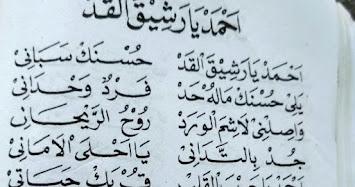 اَحْمَدْ يَا رَشِيْقَ الْقَدْ
اَحْمَدْ يَا رَشِيْقَ الْقَدْ حُسْنَكْ سَبَانِيْ
يَلِيْ حُسْنَكْ مَالُهْ حَدْ فَرْدُ وَحْدَانِيْ
وَاصِلْنِيْ لَاشُمِّ لْوَرَدْ رَوْحُ الرَّيْحَانِ
جُدْ بِالتَّدَانِيْ يَا اَحْلَى الْاَمَانِيْ
قُرْبِكْ حَيَاتِيْ